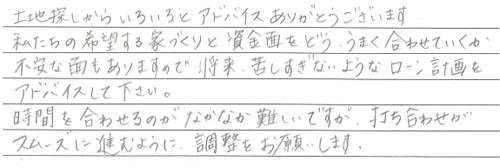 土地探しからいろいろとアドバイスありがとうございます
私たちの希望する家づくりと資金面をどう、うまく合わせていくか
不安な面もありますので、将来、苦しすぎないようなローン計画を
アドバイスして下さい。
時間を合わせるのがなかなか難しいですが、打ち合わせが
スムーズに進むように、調整をお願いします。